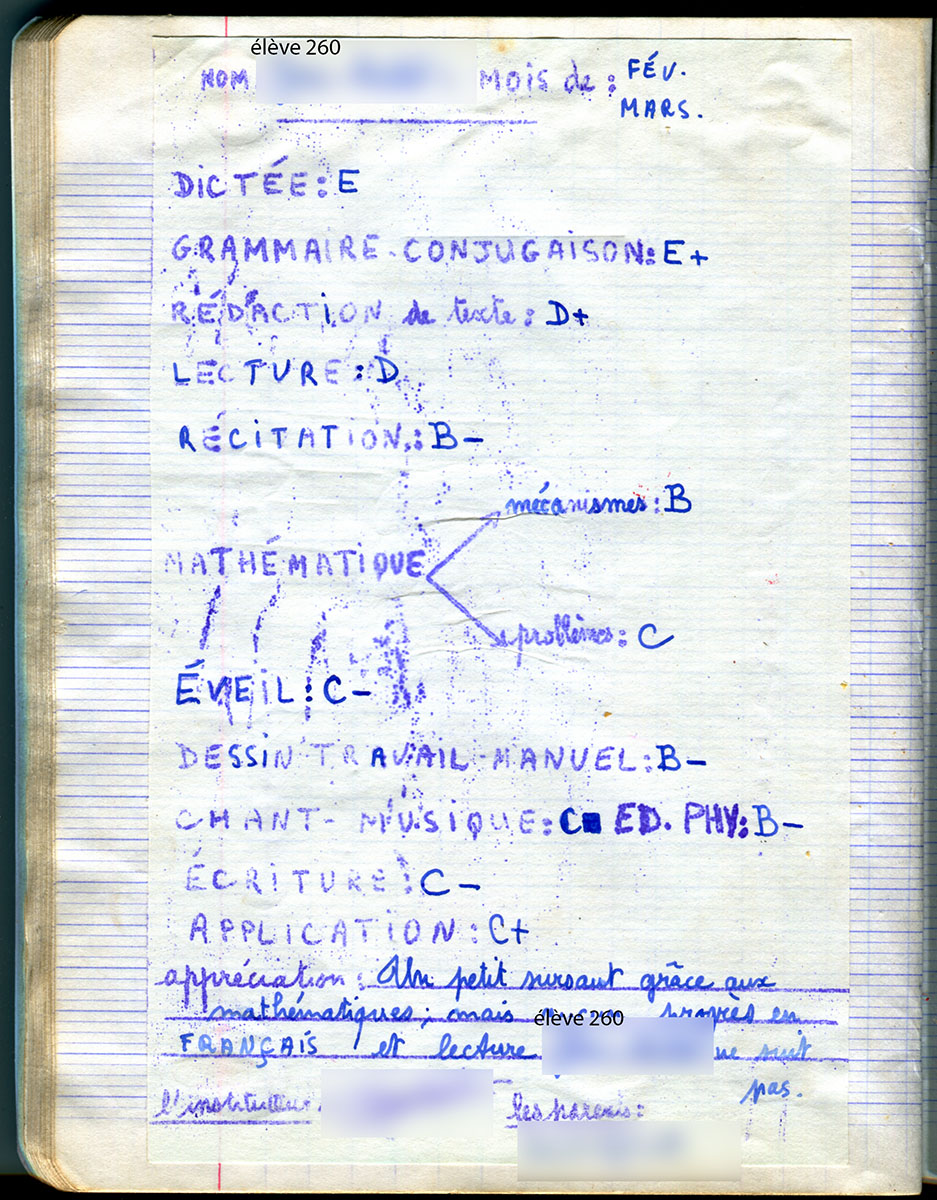 élève 260
NOM MOIS de : FÉV.
MARS.
DICTÉE : E
GRAMMAIRE - CONJUGAISON : E +
RÉDACTION de texte : D+
LECTURE : D
RÉCITATION : B -
mécanismes : B
MATHÉMATIQUE
problèmes : C
ÉVEIL : C -
DESSIN TRAVAIL - MANUEL : B -
CHANT - MUSIQUE : C ED. PHY : B -
ÉCRITURE : C -
APPLICATION : C+
appréciation : Un petit sursaut grâce aux
mathématiques ; mais élève 260 en
FRANÇAIS et lecture ne suit
pas.
l'instituteur. les parents :